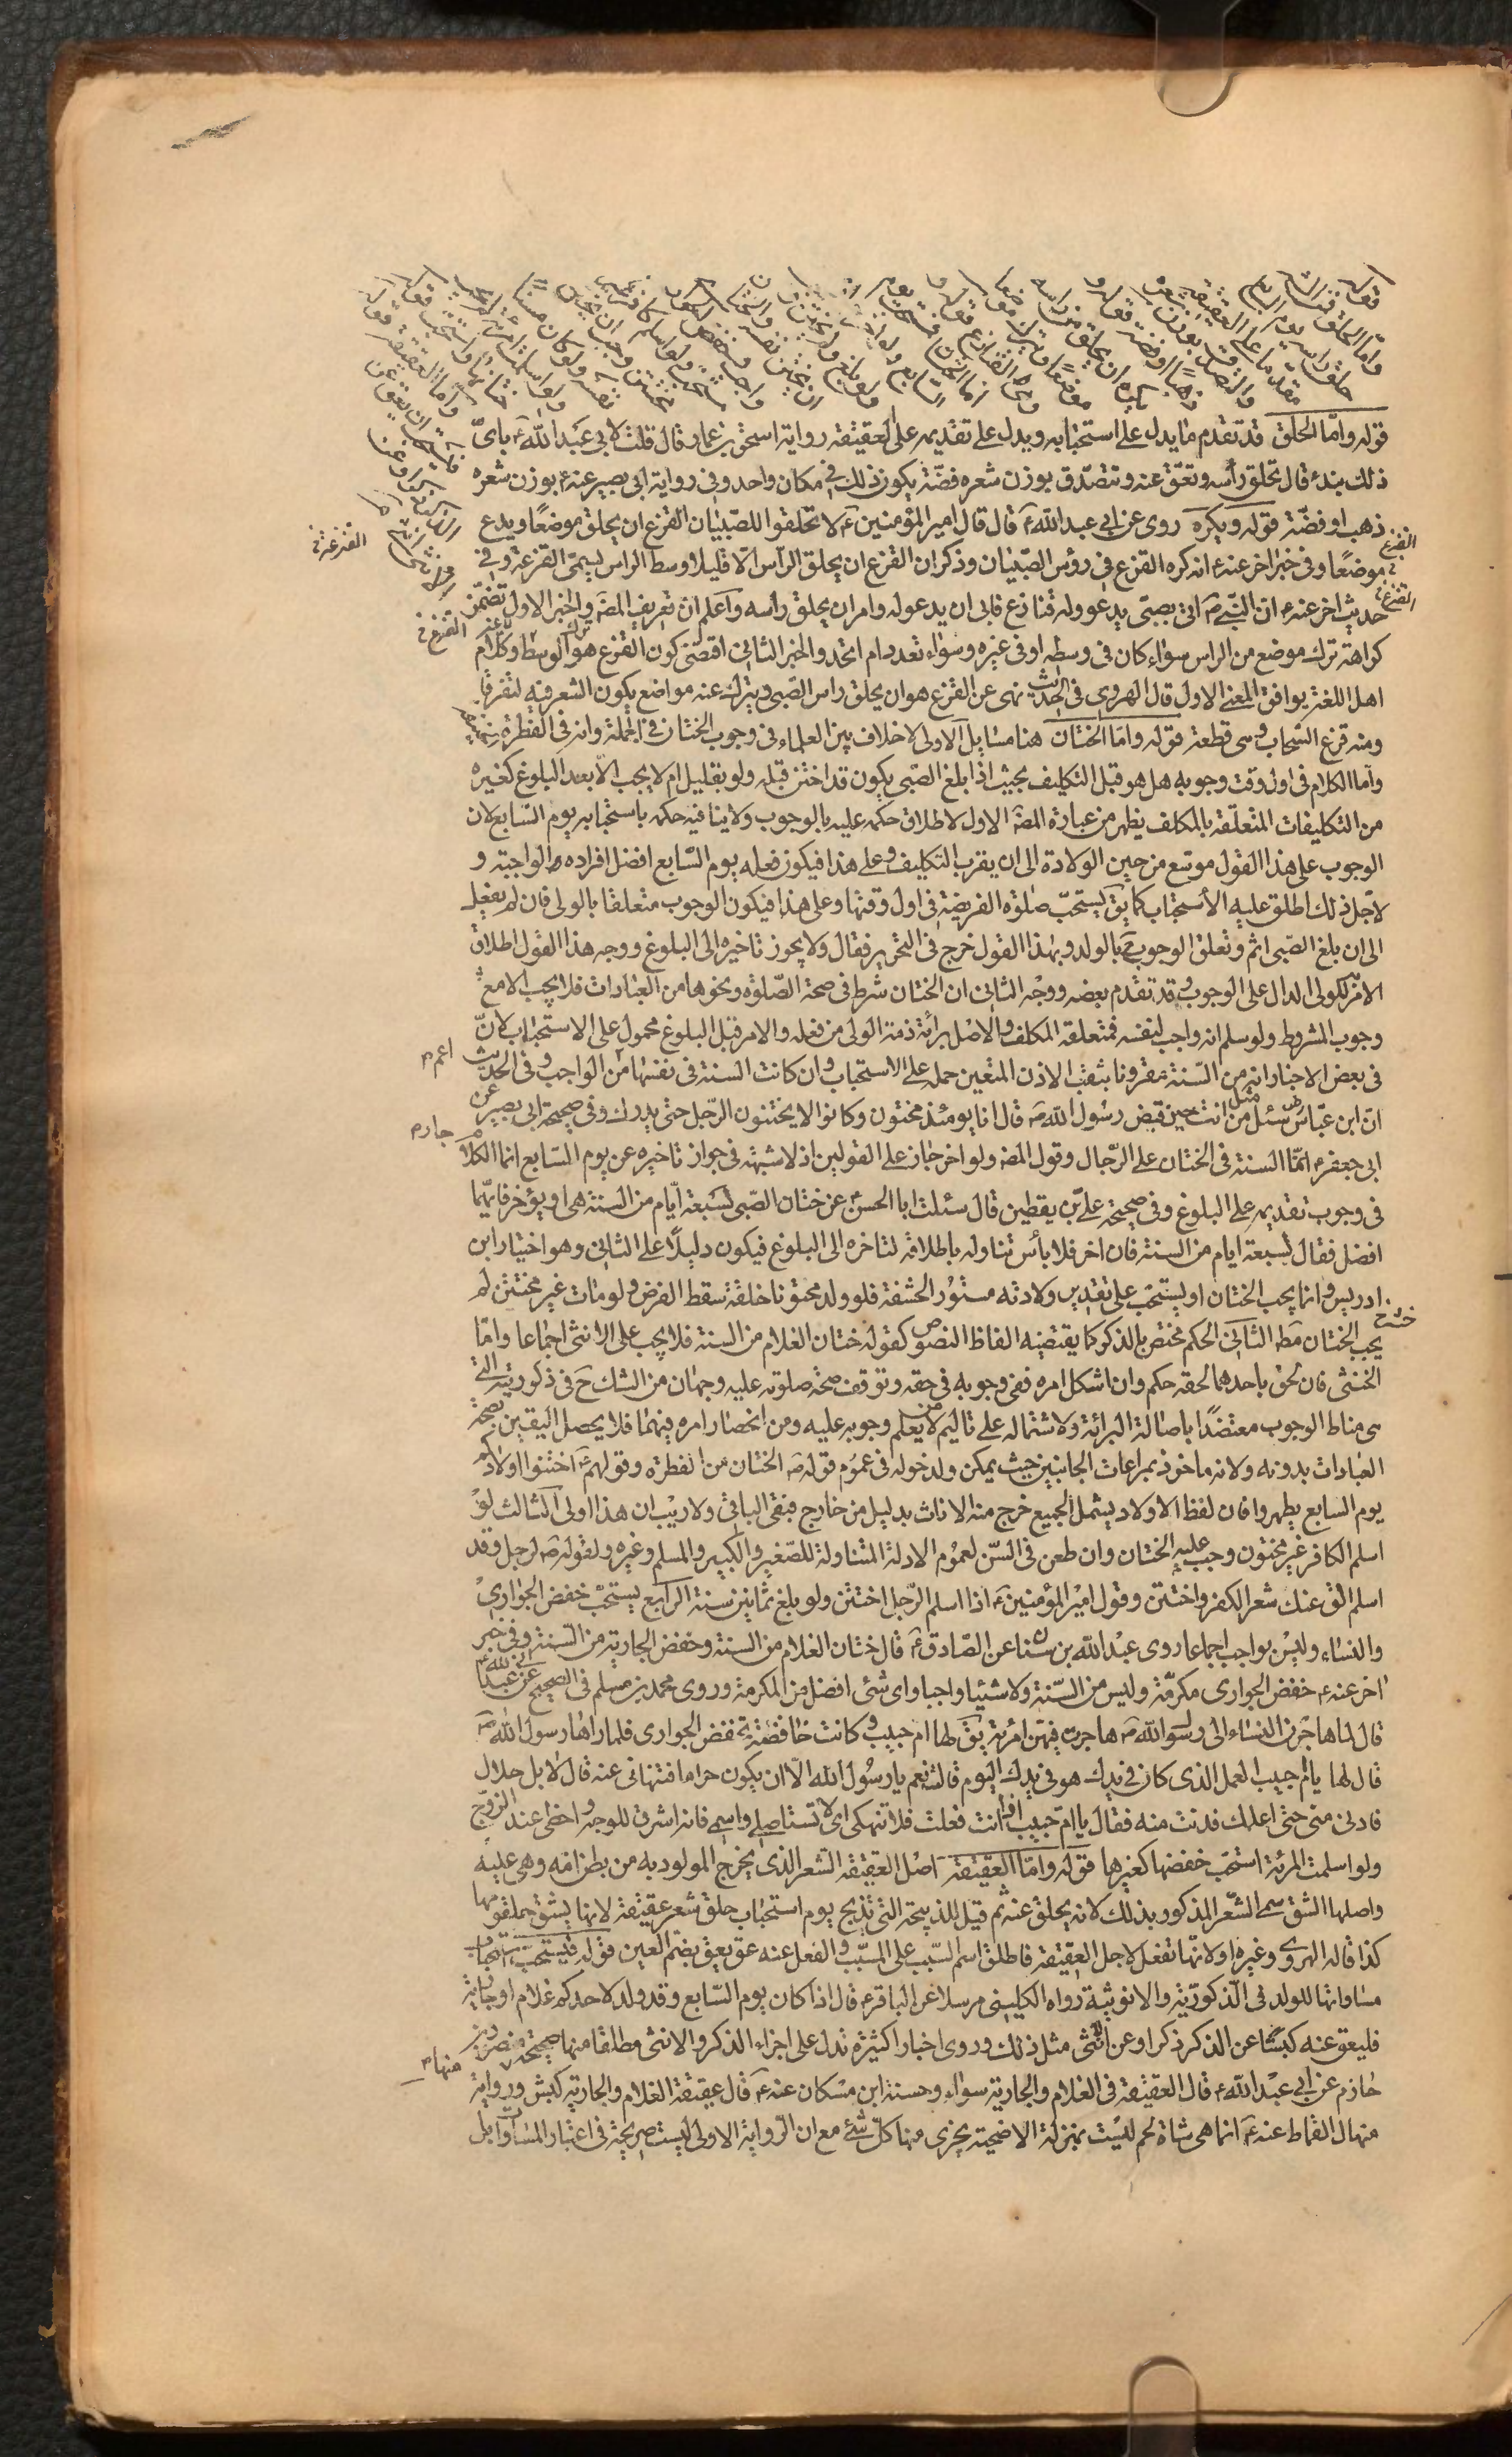 قوله واما الحلق قد تقدم ما يدل على استحبابه ويدل على تقديمه على العقيقة رواية اسحق بن عمار قال قلت لابى عبد الله ع باىّ
ذلك نبدء قال تحلق رأسه وتعقّ عنه وتتصدّق بوزن شعره فضّة يكون ذلك فى مكان واحد وفى رواية ابى بصير عنه ع بوزن شعره
ذهب او فضّة قوله ويكره روى عن ابى عبد الله ع قال قال امير المؤمنين ع لا تحلقوا للصّبيان القزع ان يحلق موضعًا ويدع
موضعًا وفى خبر اخر عنه ع انه كره القزع فى رؤس الصّبيان وذكر ان القزع ان يحلق الرّأس الّا قليلا وسط الراس يسمّى القزعة وفى
حديث اخر عنه ع انّ النبىّ ص اتى بصبىّ يدعو وله قنازع فابى ان يدعو له وامر ان يحلق رأسه واعلم ان تعريف المص والخبر الاول تضمّن
كراهة ترك موضع من الراس سواء كان فى وسطه او فى غيره وسواء تعدد ام اتحد والخبر الثانى اقتضى كون القزع هو ترك الوسط وكلام
اهل اللغة يوافق المعنى الاول قال الهروى فى الحديث نهى عن القزع هو ان يحلق راس الصّبى ويترك عنه مواضع يكون الشعر فيه متفرقا
ومنه قزع السّحاب وهى قطعة قوله واما الختان هنا مسايل الاولى لا خلاف بين العلماء فى وجوب الختان فى الجملة وانه فى الفطرة
واما الكلام فى اول وقت وجوبه هل هو قبل التكليف بحيث اذا بلغ الصّبى يكون قد اختتن قبله ولو بقليل ام لا يجب الا بعد البلوغ كغيره
من التكليفات المتعلقة بالمكلف يظهر من عبارة المص الاول لاطلاق حكمه عليه بالوجوب ولا ينافيه حكمه باستحبابه يوم السّابع لان
الوجوب على هذا القول موسّع من حين الولادة الى ان يقرب التكليف وعلى هذا فيكون فعله يوم السّابع افضل افراده الواجبة و
لاجل ذلك اطلق عليه الاستحباب كما يق يستحبّ صلوة الفريضة فى اول وقتها وعلى هذا فيكون الوجوب متعلقا بالولى فان لم يفعل
الى ان بلغ الصّبى اثم وتعلق الوجوب ح بالولد وبهذا القول خرج فى التحرير فقال ولا يجوز تاخيره الى البلوغ ووجه هذا القول اطلاق
الامر للولى الدال على الوجوب وقد تقدم بعضه ووجه الثانى ان الختان شرط فى صحة الصّلوة ونحوها من العبادات فلا يجب الا مع
وجوب المشروط ولو سلم انه واجب لنفسه فمتعلقه المكلف والاصل برائة ذمة الولى من فعله والامر قبل البلوغ محمول على الاستحباب لانّ
فى بعض الاخبار انه من السّنة مقرونا بثقب الاذن المتعين حمله على الاستحباب وان كانت السنة فى نفسها من الواجب وفى الحديث
انّ ابن عبّاس سئل مثل من انت حين قبض رسول الله ص قال انا يومئذ مختون وكانوا لا يختنون الرّجل حتى يدرك وفى صحيحة ابى بصير عن
ابى جعفر ع انّما السنة فى الختان على الرّجال وقول المص ولو اخر جاز على القولين اذ لا شبهة فى جواز تاخيره عن يوم السّابع انما الكلام
فى وجوب تقديمه على البلوغ وفى صحيحة علىّ بن يقطين قال سئلت ابا الحسن ع عن ختان الصّبى لسبعة ايّام من السنة هى او يؤخر فايّهما
افضل فقال لسبعة ايام من السنة فان اخر فلا بأس تناوله باطلاقه لتاخره الى البلوغ فيكون دليلًا على الثانى وهو اختيار ابن
ادريس وانما يجب الختان او يستحب على تقدير ولادته مستور الحشفة فلو ولد مختونا خلقة سقط الفرض ولو مات غير مختتن لم
يجب الختان مط الثانى الحكم مختص بالذكر كما يقتضيه الفاظ النصوص كقوله ختان الغلام من السنة فلا يجب على الانثى اجماعا وامّا
الخنثى فان لحق باحدهما لحقه حكمه وان اشكل امره ففى وجوبه فى حقه وتوقف صحة صلوته عليه وجهان من الشك ح فى ذكوريته التى
هى مناط الوجوب معتضدًا باصالة البرائة ولاشتماله على تاليم من لا يعلم وجوبه عليه ومن انحصار امره فيهما فلا يحصل اليقين بصحة
العبادات بدونه ولانه ماخوذ بمراعات الجانبين حيث يمكن ولدخوله فى عموم قوله ص الختان من الفطرة وقولهم ع اختنوا اولادكم
يوم السابع يطهروا فان لفظ الاولاد يشمل الجميع خرج منه الاناث بدليل من خارج فبقى الباقى ولا ريب ان هذا اولى الثالث لو
اسلم الكافر غير مختون وجب عليه الختان وان طعن فى السّن لعموم الادلة المتناولة للصّغير والكبير والمسلم وغيره ولقوله ص لرجل وقد
اسلم الق عنك شعر الكفر واختتن وقول امير المؤمنين ع اذا اسلم الرّجل اختتن ولو بلغ ثمانين سنة الرابع يستحبّ خفض الجوارى
والنساء وليس بواجب اجماعا روى عبد الله بن سنان عن الصّادق ع قال ختان الغلام من السنة وخفض الجارية من السّنة وفى خبر
اخر عنه ع خفض الجوارى مكرمّة وليس من السّنة ولا شيئا واجبا واى شئ افضل من المكرمة وروى محمد بن مسلم فى الصحيح عن ابى عبد الله ع
قال لما هاجرن النساء الى رسول الله ص هاجرت فيهن امرئة يق لها ام حبيب وكانت خافضة تخفض الجوارى فلما راها رسول الله ص
قال لها يا ام حبيب العمل الذى كان فى يدك هو فى يدك اليوم قالت نعم يا رسول الله الّا ان يكون حراما فتنهانى عنه قال لا بل حلال
فادنى منى حتى اعلمك فدنت منه فقال يا امّ حبيب اذا انت فعلت فلا تنهكى اى لا تستاصلى واشمى فانه اشرق للوجه واحظى عند الزوج
ولو اسلمت المرئة استحب خفضها كغيرها قوله وامّا العقيقة اصل العقيقة الشعر الذى يخرج المولود به من بطن امّه وهى عليه
واصلها الشق سمى الشّعر المذكور بذلك لانه يحلق عنه ثم قيل للذبيحة التى تذبح يوم استحباب حلق شعر عقيقة لانها يشق حلقومها
كذا قاله الهروى وغيره او لانّها تفعل لاجل العقيقة فاطلق اسم السّبب على المسبّب والفعل عنه عق يعق بضم العين قوله فيستحب استحباب
مساواتها للولد فى الذّكوريّة والانوثية رواه الكلينى مرسلا عن الباقر ع قال اذا كان يوم السّابع وقد ولد لاحدكم غلام او جارية
فليعق عنه كبشًا عن الذكر ذكرا وعن الانثى مثل ذلك وروى اخبار كثيرة تدل على اجزاء الذكر والانثى مطلقا منها صحيحة منصور بن
حازم عن ابى عبد الله ع قال العقيقة فى الغلام والجارية سواء وحسنة ابن مسكان عنه ع قال عقيقة الغلام والجارية كبش ورواية
منهال القماط عنه ع انما هى شاة لحم ليست بمنزلة الاضحية يجزى منها كلّ شئ مع ان الرّواية الاولى ليست صريحة فى اعتبار المساواة بل